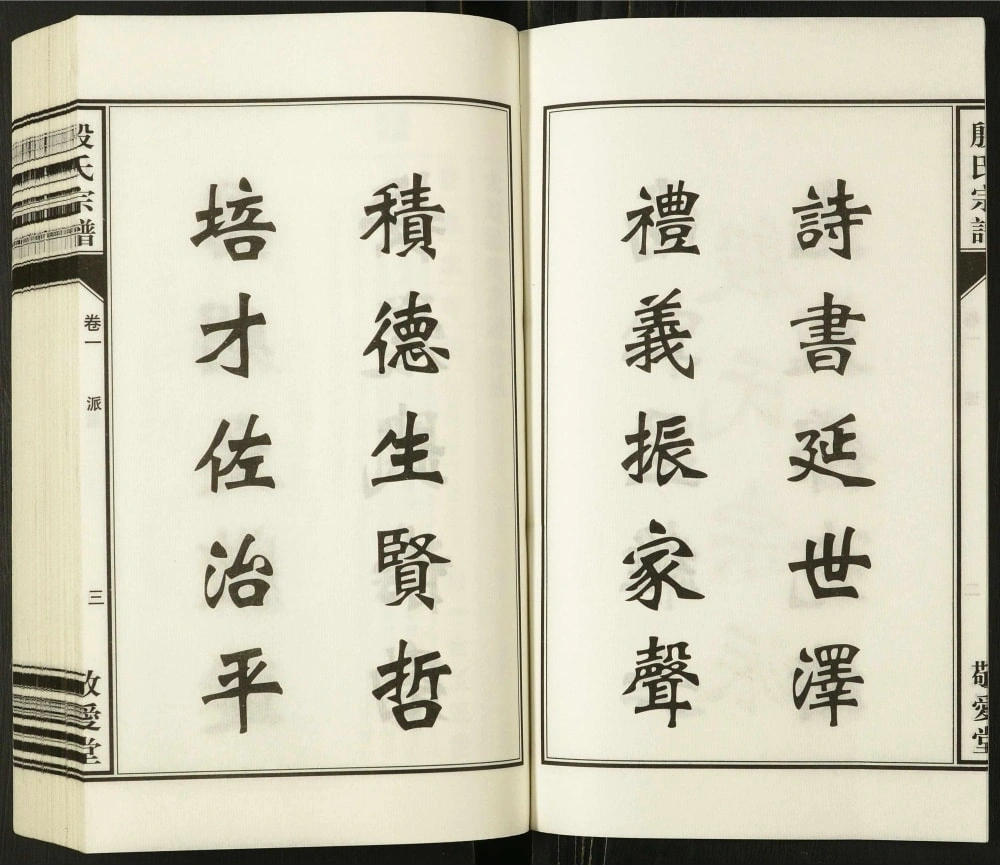 殷氏宗譜
敬愛堂
詩書延世澤
禮義振家聲
積德生賢哲
培才佐治平
殷氏宗譜
卷一
派
三
敬愛堂